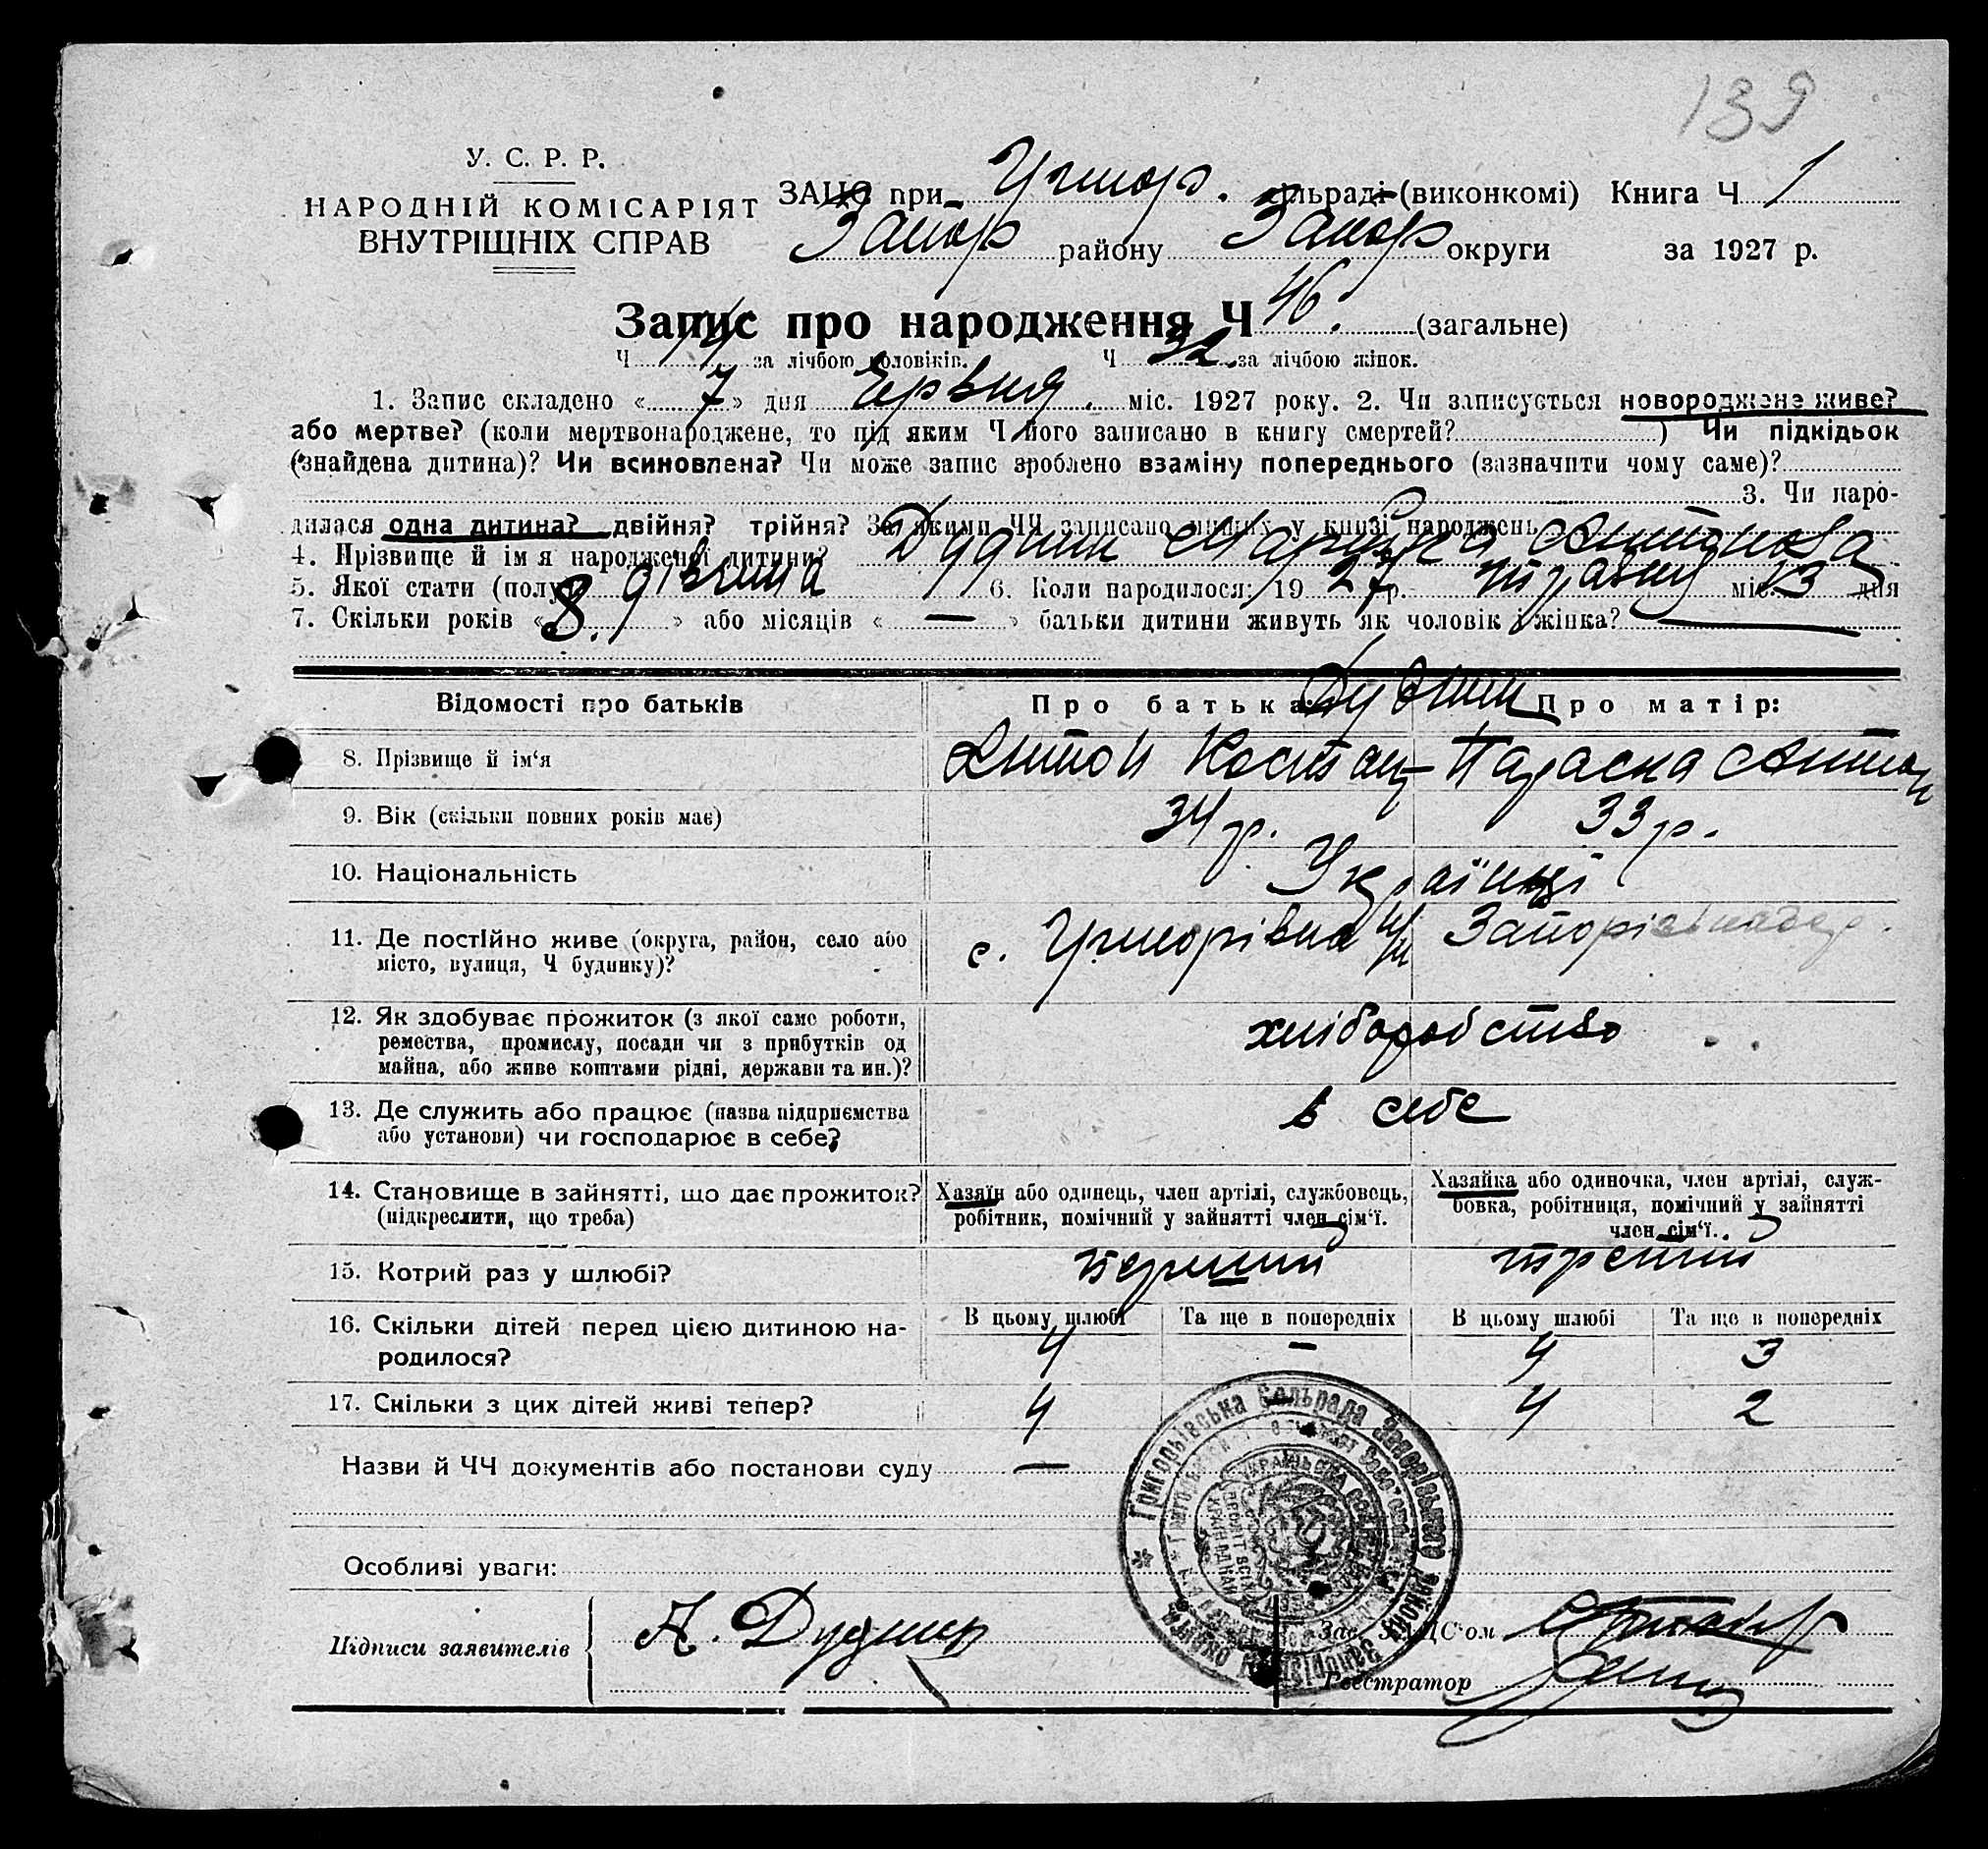 139
У. С. Р. Р.
НАРОДНІЙ КОМІСАРІЯТ
ВНУТРІШНІХ СПРАВ
ЗАЦС при сільраді (виконкомі) Книга Ч 1
Запор району Запор округи за 1927 р.
Запис про народження Ч 46. (загальне)
Ч 14 за лічбою чоловіків. Ч 32 за лічбою жінок.
1. Запис складено « 7 » дня Червня міс. 1927 року. 2. Чи записується новороджене живе?
або мертве? (коли мертвонароджене, то під яким Ч його записано в книгу смертей? ) Чи підкідьок
(знайдена дитина)? Чи всиновлена? Чи може запис зроблено взаміну попереднього (зазначити чому саме)?
3. Чи наро-
дилася одна дитина? двійня? трійня? За якими ЧЧ записано инших у книзі народжень
4. Прізвище й ім я народженої дитини? Дудник Марфа Антонова
5. Якої стати (полу) дівчина 6. Коли народилося: 19 27 р. травня міс. 13 дня
7. Скільки років « 8. » або місяців « — » батьки дитини живуть як чоловік і жінка? —
Відомості про батьків Про батька: Дудник Про матір:
8. Прізвище й ім‘я Антон Костян Параска Антон
9. Вік (скільки повних років має) 34 р. 33 р.
10. Національність Українці
11. Де постійно живе (округа, район, село або
місто, вулиця, Ч будинку)? с. Запорізького
12. Як здобуває прожиток (з якої саме роботи,
ремества, промислу, посади чи з прибутків од
майна, або живе коштами рідні, держави та ин.)? хліборобство
13. Де служить або працює (назва підприємства
або установи) чи господарює в себе? в себе
14. Становище в зайнятті, що дає прожиток?
(підкреслити, що треба)
Хазяїн або одинець, член артілі, службовець,
робітник, помічний у зайнятті член сім‘ї.
Хазяйка або одиночка, член артілі, служ-
бовка, робітниця, помічний у зайнятті
член сім‘ї.
15. Котрий раз у шлюбі? перший третий
16. Скільки дітей перед цією дитиною на-
родилося?
В цьому шлюбі Та ще в попередніх В цьому шлюбі Та ще в попередніх
4 — 4 3
17. Скільки з цих дітей живі тепер? 4 4 2
Назви й ЧЧ документів або постанови суду —
Григорьівська Сельрада Запорізького району Запорізької округи
Особливі уваги:
Підписи заявителів А. Дудник
Зав. ЗАЦС‘ом
Реєстратор